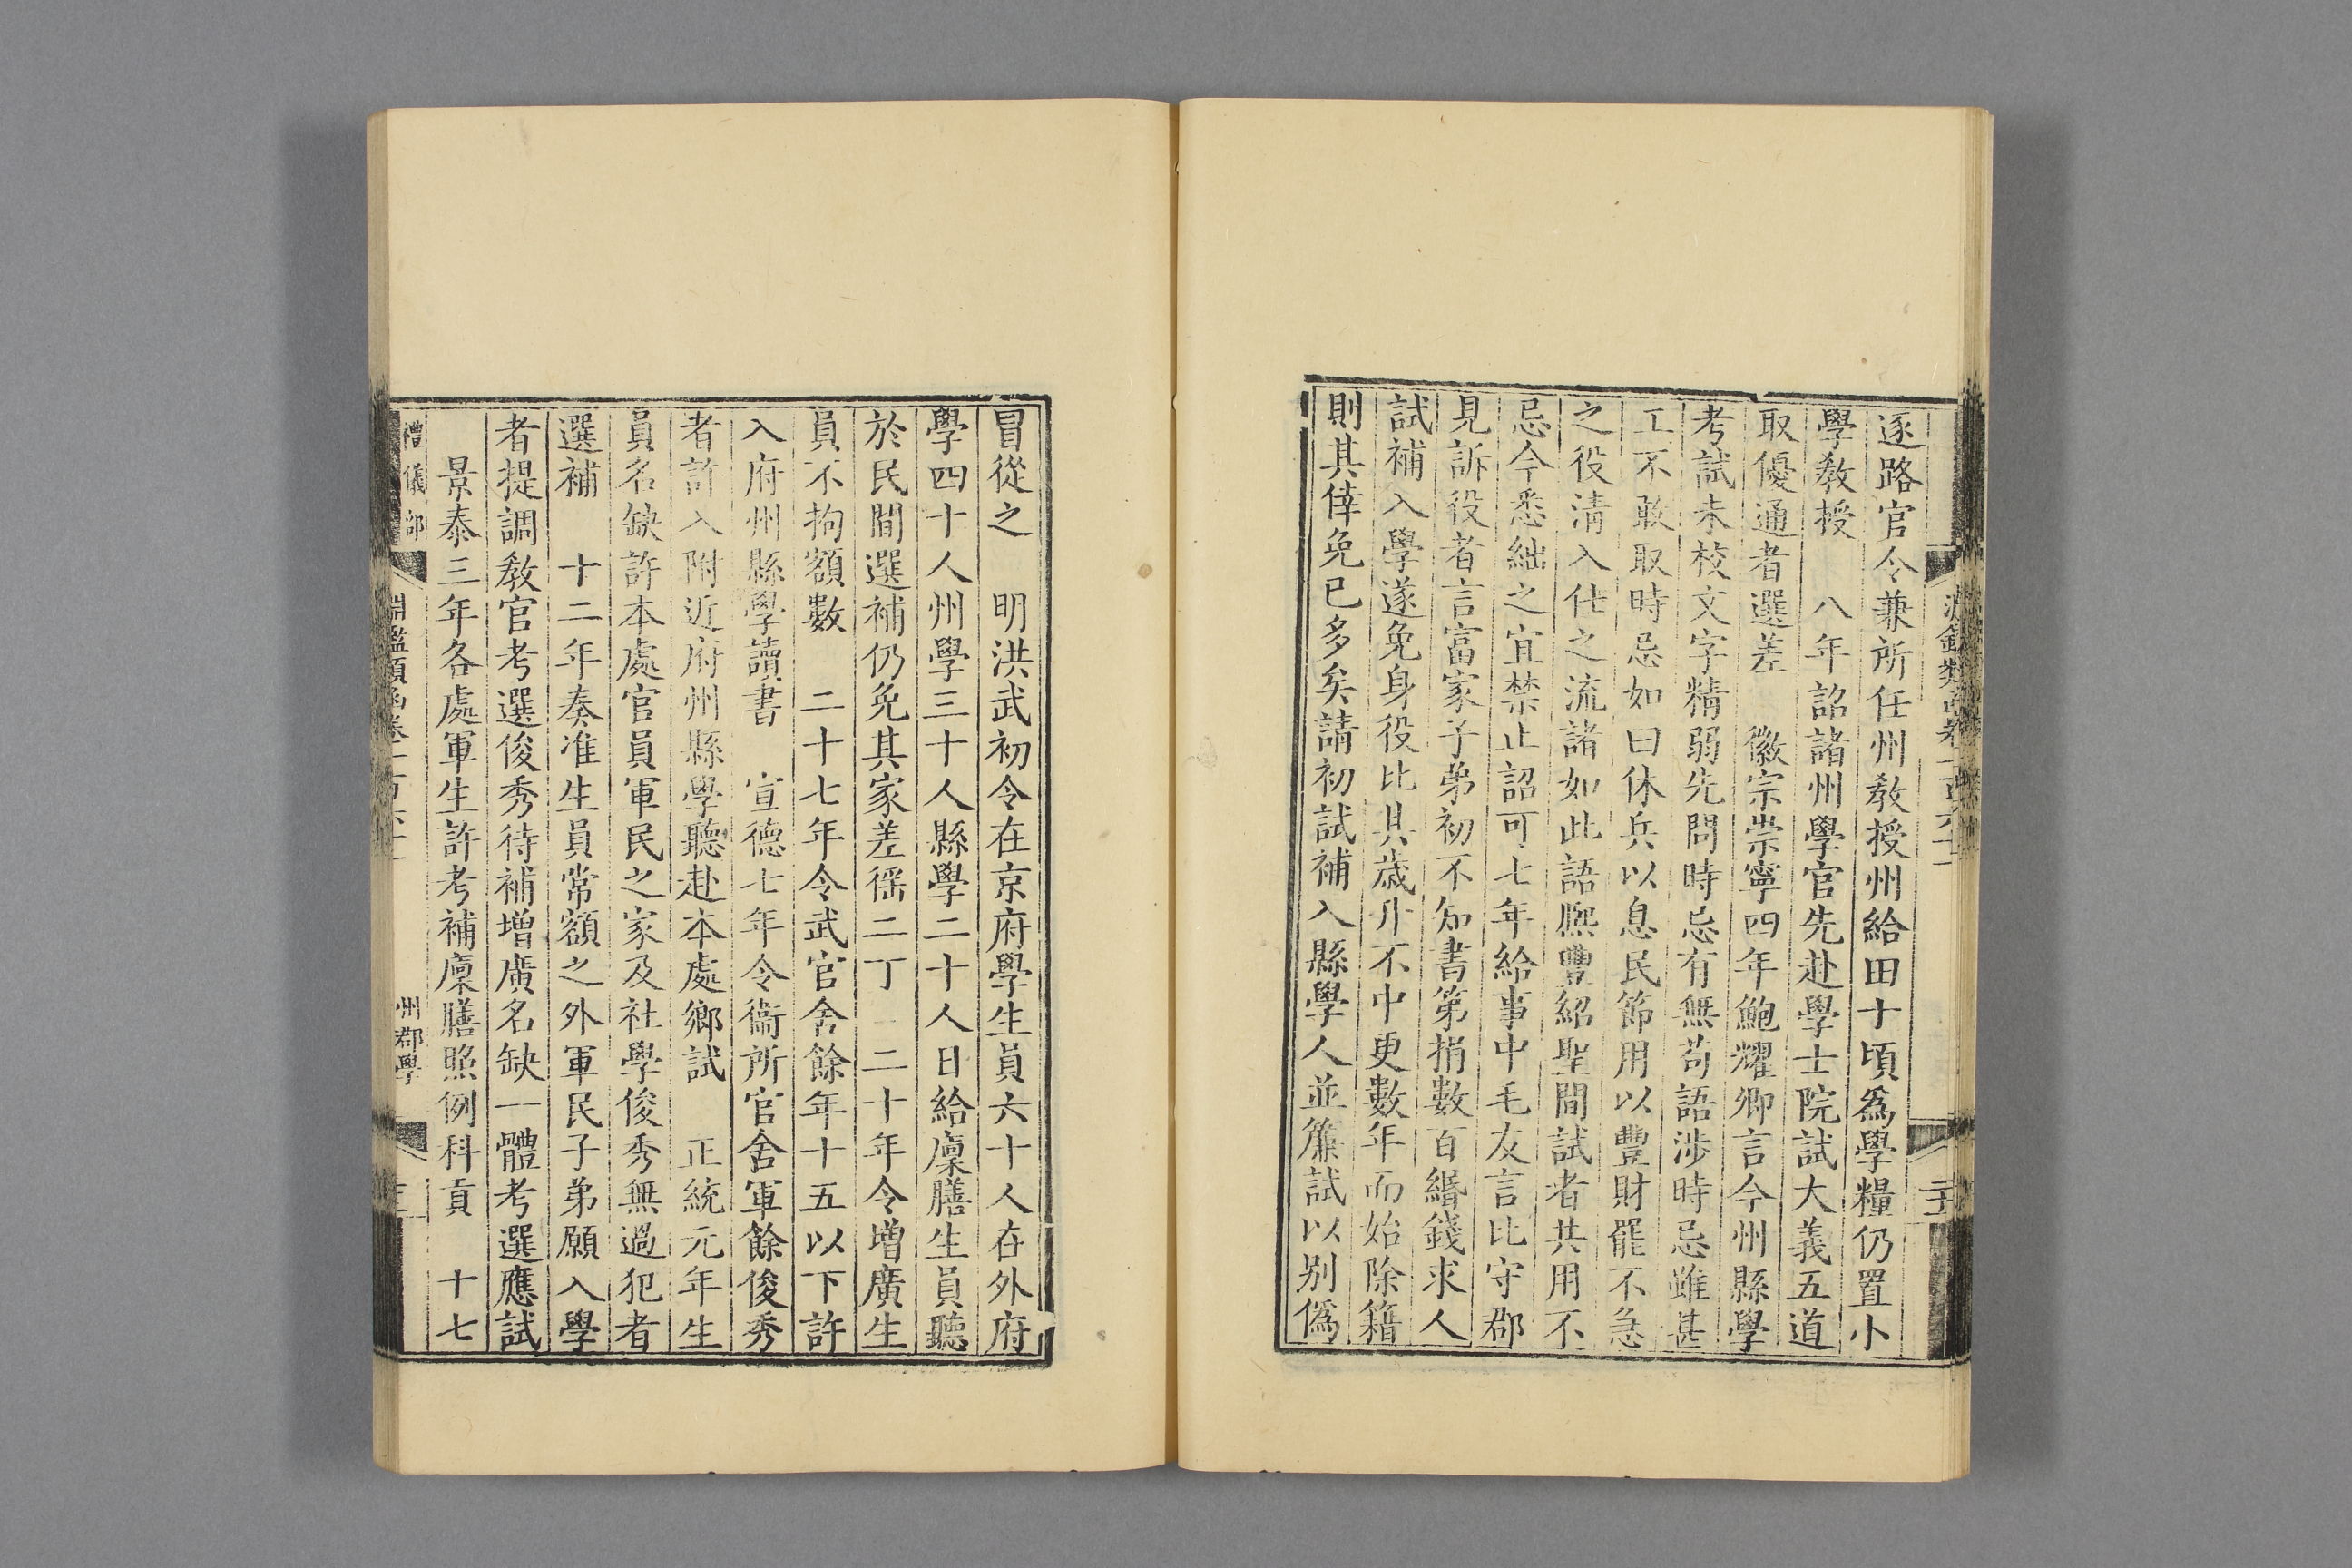 逐路官令兼所任州教授州給田十頃爲學糧仍置小
學教授　八年詔諸州學官先赴學士院試大義五道
取優通者選差　徽宗崇寧四年鮑耀卿言今州縣學
考試未校文字精弱先問時忌有無苟語涉時忌雖甚
工不敢取時忌如曰休兵以息民節用以豐財罷不急
之役清入仕之流諸如此語熙豐紹聖間試者共用不
忌今悉絀之宜禁止詔可七年給事中毛友言比守郡
見訴役者言富家子弟初不知書第捐數百緡錢求人
試補入學遂免身役比其歲升不中更數年而始除籍
則其倖免已多矣請初試補入縣學人並簾試以别僞
冒從之　明洪武初令在京府學生員六十人在外府
學四十人州學三十人縣學二十人日給廩膳生員聽
於民間選補仍免其家差徭二丁　二十年令增廣生
員不拘額數　二十七年令武官舍餘年十五以下許
入府州縣學讀書　宣德七年令衞所官舍軍餘俊秀
者許入附近府州縣學聽赴本處鄉試　正統元年生
員名缺許本處官員軍民之家及社學俊秀無過犯者
選補　十二年奏准生員常額之外軍民子弟願入學
者提調教官考選俊秀待補增廣名缺一體考選應試
景泰三年各處軍生許考補廩膳照例科貢　十七
禮儀部
淵鑑類函卷二百六十一
州郡學